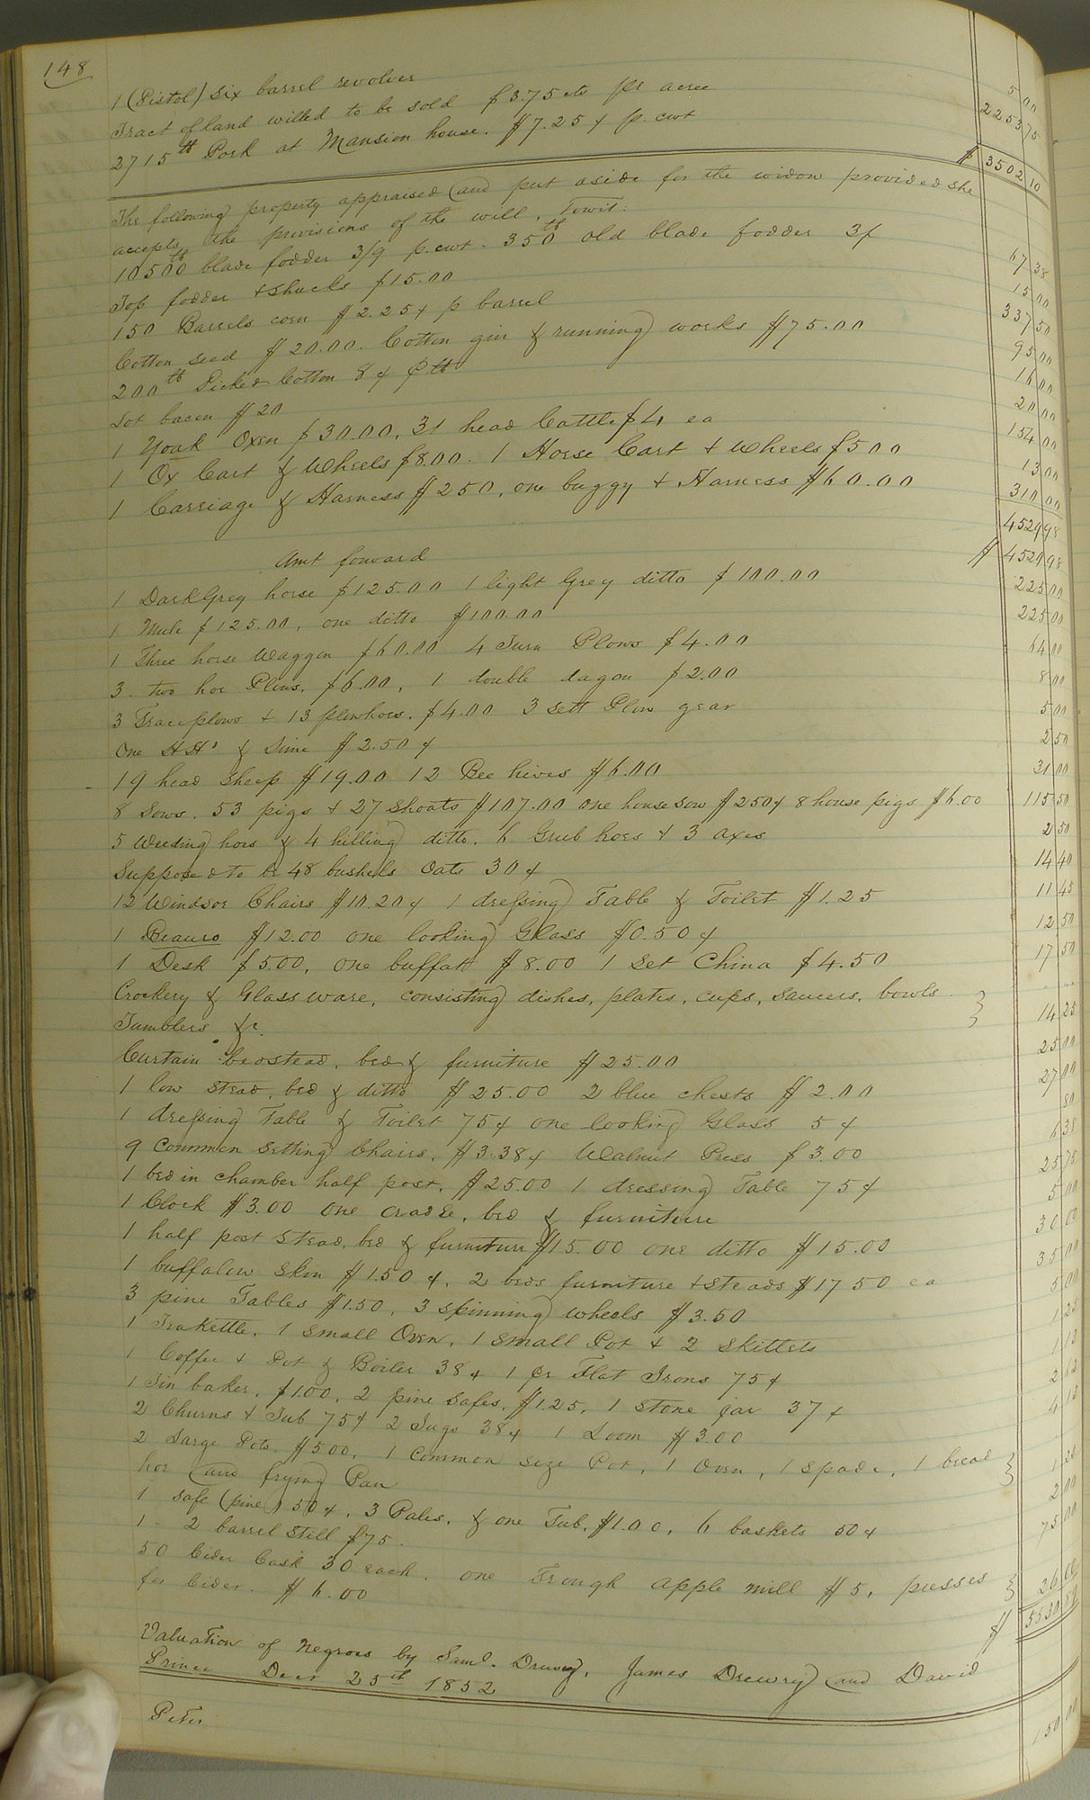 148
1 (Pistol) six barrel revolver 5 00
Tract of land willed to be sold $3.75 cts pr acre 2253 75
2715 lb Pork at Mansion house. $7.25 ¢ p. cwt
$ 3502 10
The following property appraised and put aside for the widow provided she
accepts the provisions of the will, Towit:
10500 lb blade fodder 3/9 p. cwt. 350 lb old blade fodder 3/ 67 38
Top fodder + shucks $15.00 15 00
150 Barrels corn $2.25 ¢ p barrel 337 50
Cotton seed $20.00. Cotton gin & running works $75.00 95 00
200 lb Picked Cotton 8 ¢ p lb 16 00
Lot bacon $20 20 00
1 Yoak Oxen $30.00, 31 head Cattle $4 ea 154 00
1 Ox Cart & Wheels $8.00. 1 Horse Cart + Wheels $5 00 13 00
1 Carriage & Harness $250, one buggy + Harness $60.00 310 00
4529 98
Amt forward $ 4529 98
1 Dark Grey horse $125.00 1 light Grey ditto $100.00 225 00
1 Mule $125.00, one ditto $100.00 225 00
1 Three horse Waggon $60.00 4 Turn Plows $4.00 64 00
3 two hoe Plows. $6.00, 1 double dagon $2.00 8 00
3 Trace plows + 13 plowhoes. $4.00 3 sett Plow gear 5 00
One HHd & Lime $2.50 ¢ 2 50
19 head sheep $19.00 12 Bee hives $6.00 31 00
8 Sows. 53 pigs + 27 Shoats $107.00 one house sow $250 ¢ 8 house pigs $6.00 115 50
5 weeding hoes & 4 hilling ditto. 6 Grub hoes + 3 axes 2 50
Supposed to be 48 bushels Oats 30 ¢ 14 40
12 Windsor Chairs $10.20 ¢ 1 dressing Table & Toilet $1.25 11 45
1 Beauro $12.00 one looking Glass $0.50 ¢ 12 50
1 Desk $5.00, one buffatt $8.00 1 Set China $4.50 17 50
Crockery & Glass ware, consisting dishes, plates, cups, saucers, bowls
Tumblers &c. 14 25
Curtain bedstead, bed & furniture $25.00 25 00
1 low stead, bed & ditto $25.00 2 blue chests $2.00 27 00
1 dressing Table & Toilet 75 ¢ one looking Glass 5 ¢ 80
9 Common Setting Chairs. $3.38 ¢ Walnut Press $3.00 6 38
1 bed in chamber half post. $25.00 1 dressing Table 75 ¢ 25 75
1 Clock $3.00 one cradle, bed & furniture 5 00
1 half post stead, bed & furniture $15.00 one ditto $15.00 30 00
1 buffalow Skin $1.50 ¢. 2 beds furniture + Steads $17 50 ea
3 pine Tables $1.50, 3 spinning wheels $3.50 5 00
1 Teakettle. 1 small Oven, 1 small Pot + 2 Skittets
1 Coffee + Pot & Boiler 38 ¢ 1 pr Flat Irons 75 ¢
1 Tin baker. $1.00. 2 pine safes. $1.25, 1 stone jar 37 ¢
2 Churns + Tub 75 ¢ 2 Jugs 38 ¢ 1 Loom $3.00 4 13
2 Large Pots. $5 00, 1 common size Pot, 1 Oven, 1 Spade, 1 bread
hoe and frying Pan
1 safe (pine) 50 ¢, 3 Pales, & one Tub. $1.00, 6 baskets 50 ¢ 2 00
1 2 barrel Still $75. 75 00
50 Cider Cask 30 each. one Trough apple mill $5, presses
for Cider. $6.00 26 00
$
Valuation of Negroes by Saml. Drewry, James Drewry and David
Prince Decr 25th 1852
Peter